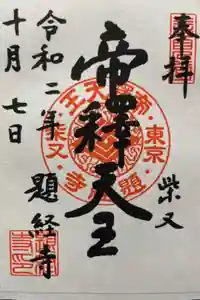 奉拝
柴又
帝釋天王
令和二年 題経寺
十月七日
東京
柴又
帝釋天王
題経寺